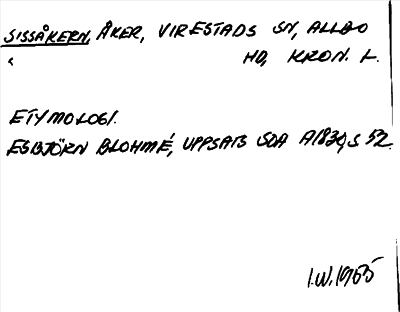 SISSÅKERN, ÅKER, VIRESTADS SN, ALLBO
HD, KRON. L.
ETYMOLOGI.
ESBJÖRN BLOHMÉ, UPPSATS SOA A1830, S 52.
I.W. 1965